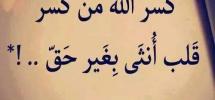 كسر الله من كسر
قَلب أُنثى بِغَير حَقّ .. !*